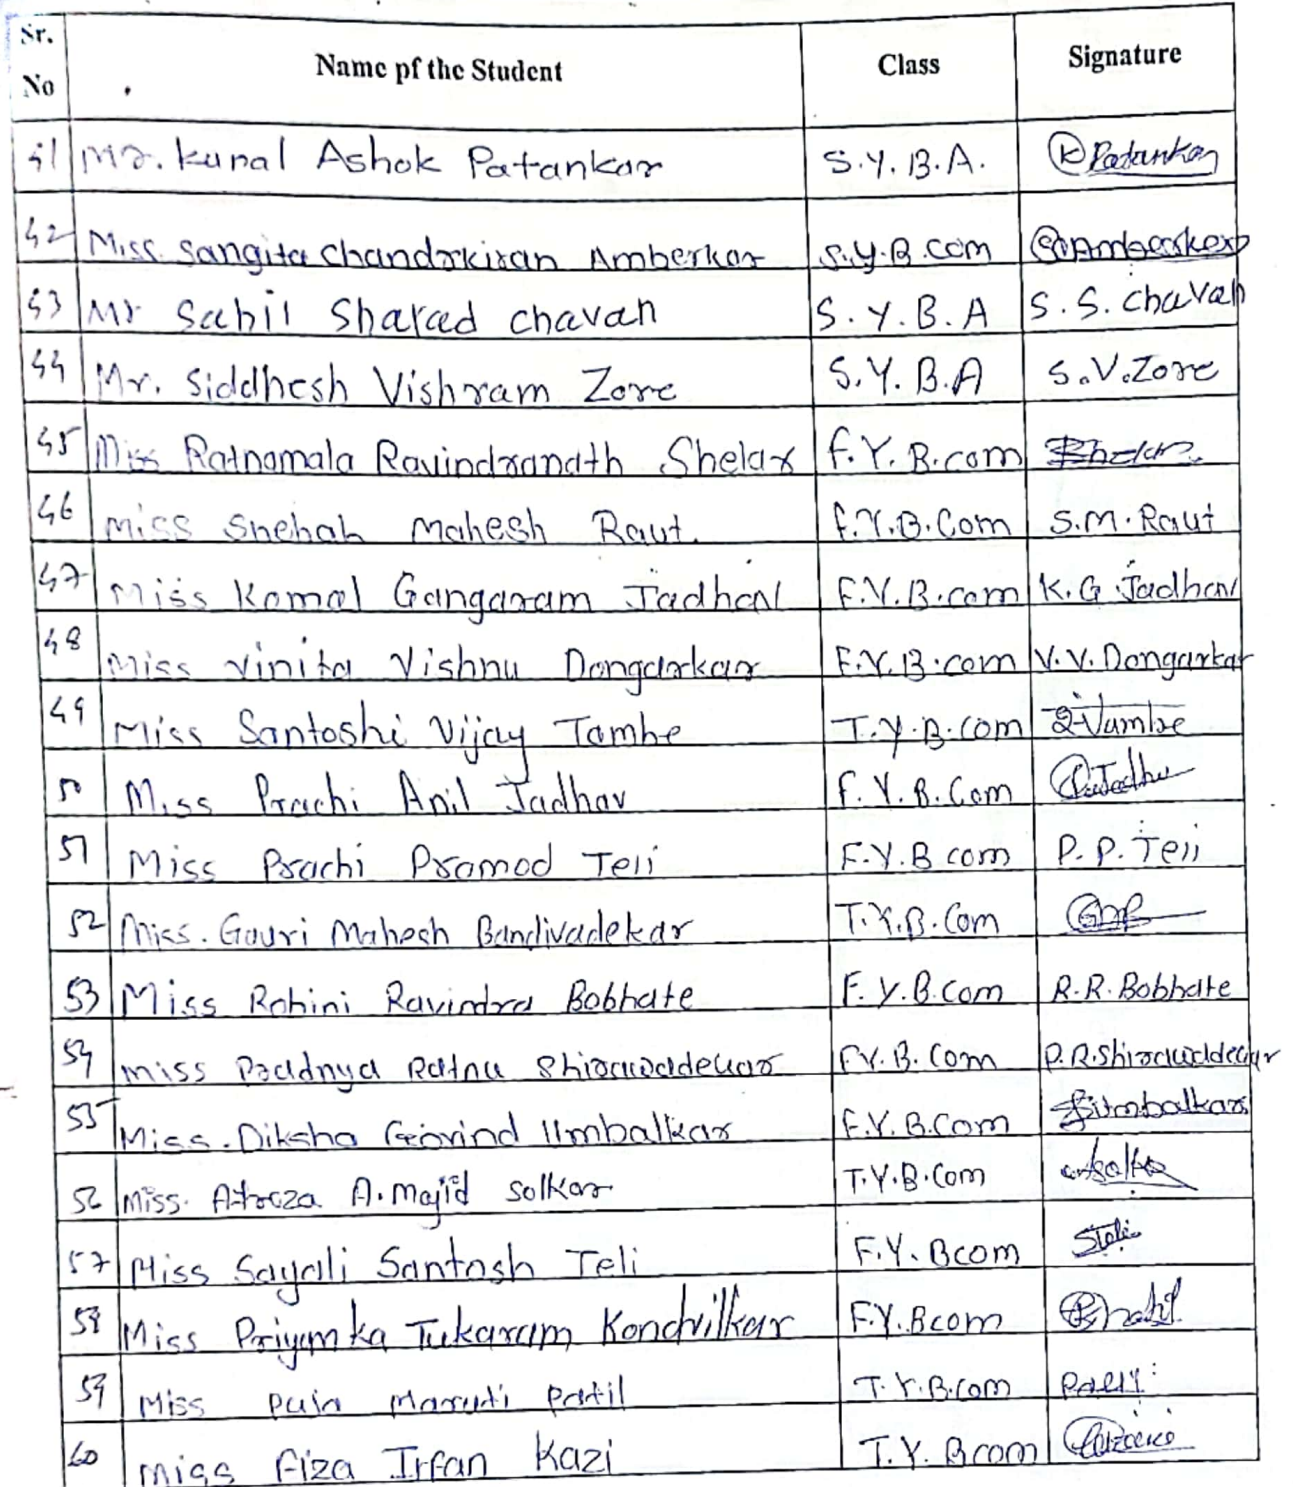 Sr. No Name pf the Student Class Signature
41 Mr. Kunal Ashok Patankar S.Y.B.A. Patankar
42 Miss. Sangita Chandrakiran Amberkar S.Y.B.com Amberkar
43 Mr Sahil Sharad chavan S.Y.B.A S. S. chavan
44 Mr. Siddhesh Vishram Zore S.Y.B.A S.V.Zore
45 Miss Ratnamala Ravindranath Shelar F.Y.B.com
46 Miss Snehal Mahesh Raut. F.Y.B.Com S.M.Raut
47 Miss Komal Gangaram Jadhav F.Y.B.com K.G Jadhav
48 Miss Vinita Vishnu Dongarkar F.Y.B.com V.V.Dongarkar
49 Miss Santoshi Vijay Tambe T.Y.B.com
50 Miss Prachi Anil Jadhav F.Y.B.Com
51 Miss Prachi Pramod Teli F.Y.B com P.P.Teli
52 Miss. Gouri Mahesh Bandivadekar T.Y.B.Com
53 Miss Rohini Ravindra Bobhate F.Y.B.Com R.R.Bobhate
54 Miss Pradnya Ratnu Shirawadekar F.Y.B.Com P.R.Shirawadekar
55 Miss. Diksha Govind Umbalkar F.Y.B.Com
56 Miss. A.majid Solkar T.Y.B.Com
57 Miss Sayali Santosh Teli F.Y.Bcom
58 Miss Priyanka Tukaram Kondvilkar F.Y.Bcom
59 Miss Puja Maruti Patil T.Y.B.com
60 Miss Fiza Irfan Kazi T.Y.Bcom